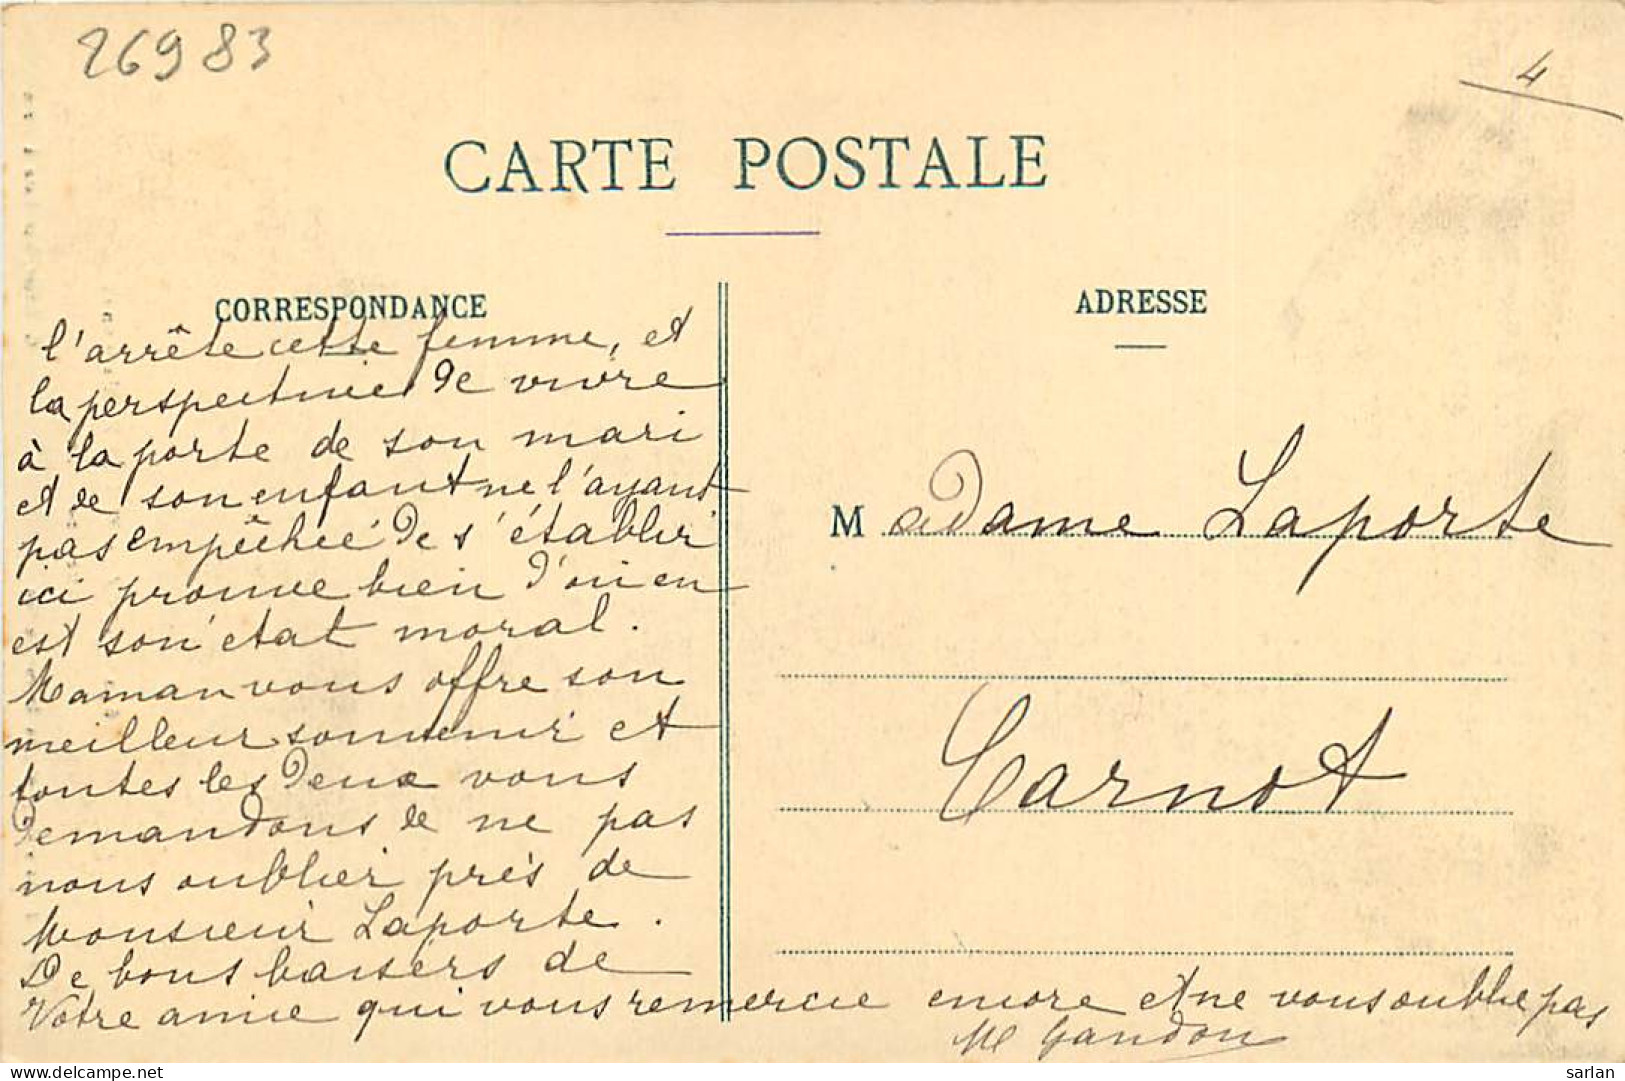 26983
4
CARTE POSTALE
CORRESPONDANCE
l'arrête cette femme, et
la perspective de vivre
à la porte de son mari
et de son enfant ne l'ayant
pas empêchée de s'établir
ici prouve bien d'où en
est son état moral.
Maman vous offre son
meilleur souvenir et
toutes les deux vous
demandons de ne pas
nous oublier près de
Monsieur Laporte.
De bons baisers de
Votre amie qui vous remercie encore et ne vous oublie pas
M Gandon
ADRESSE
Madame Laporte
Carnot
delcampe.net
sarlan